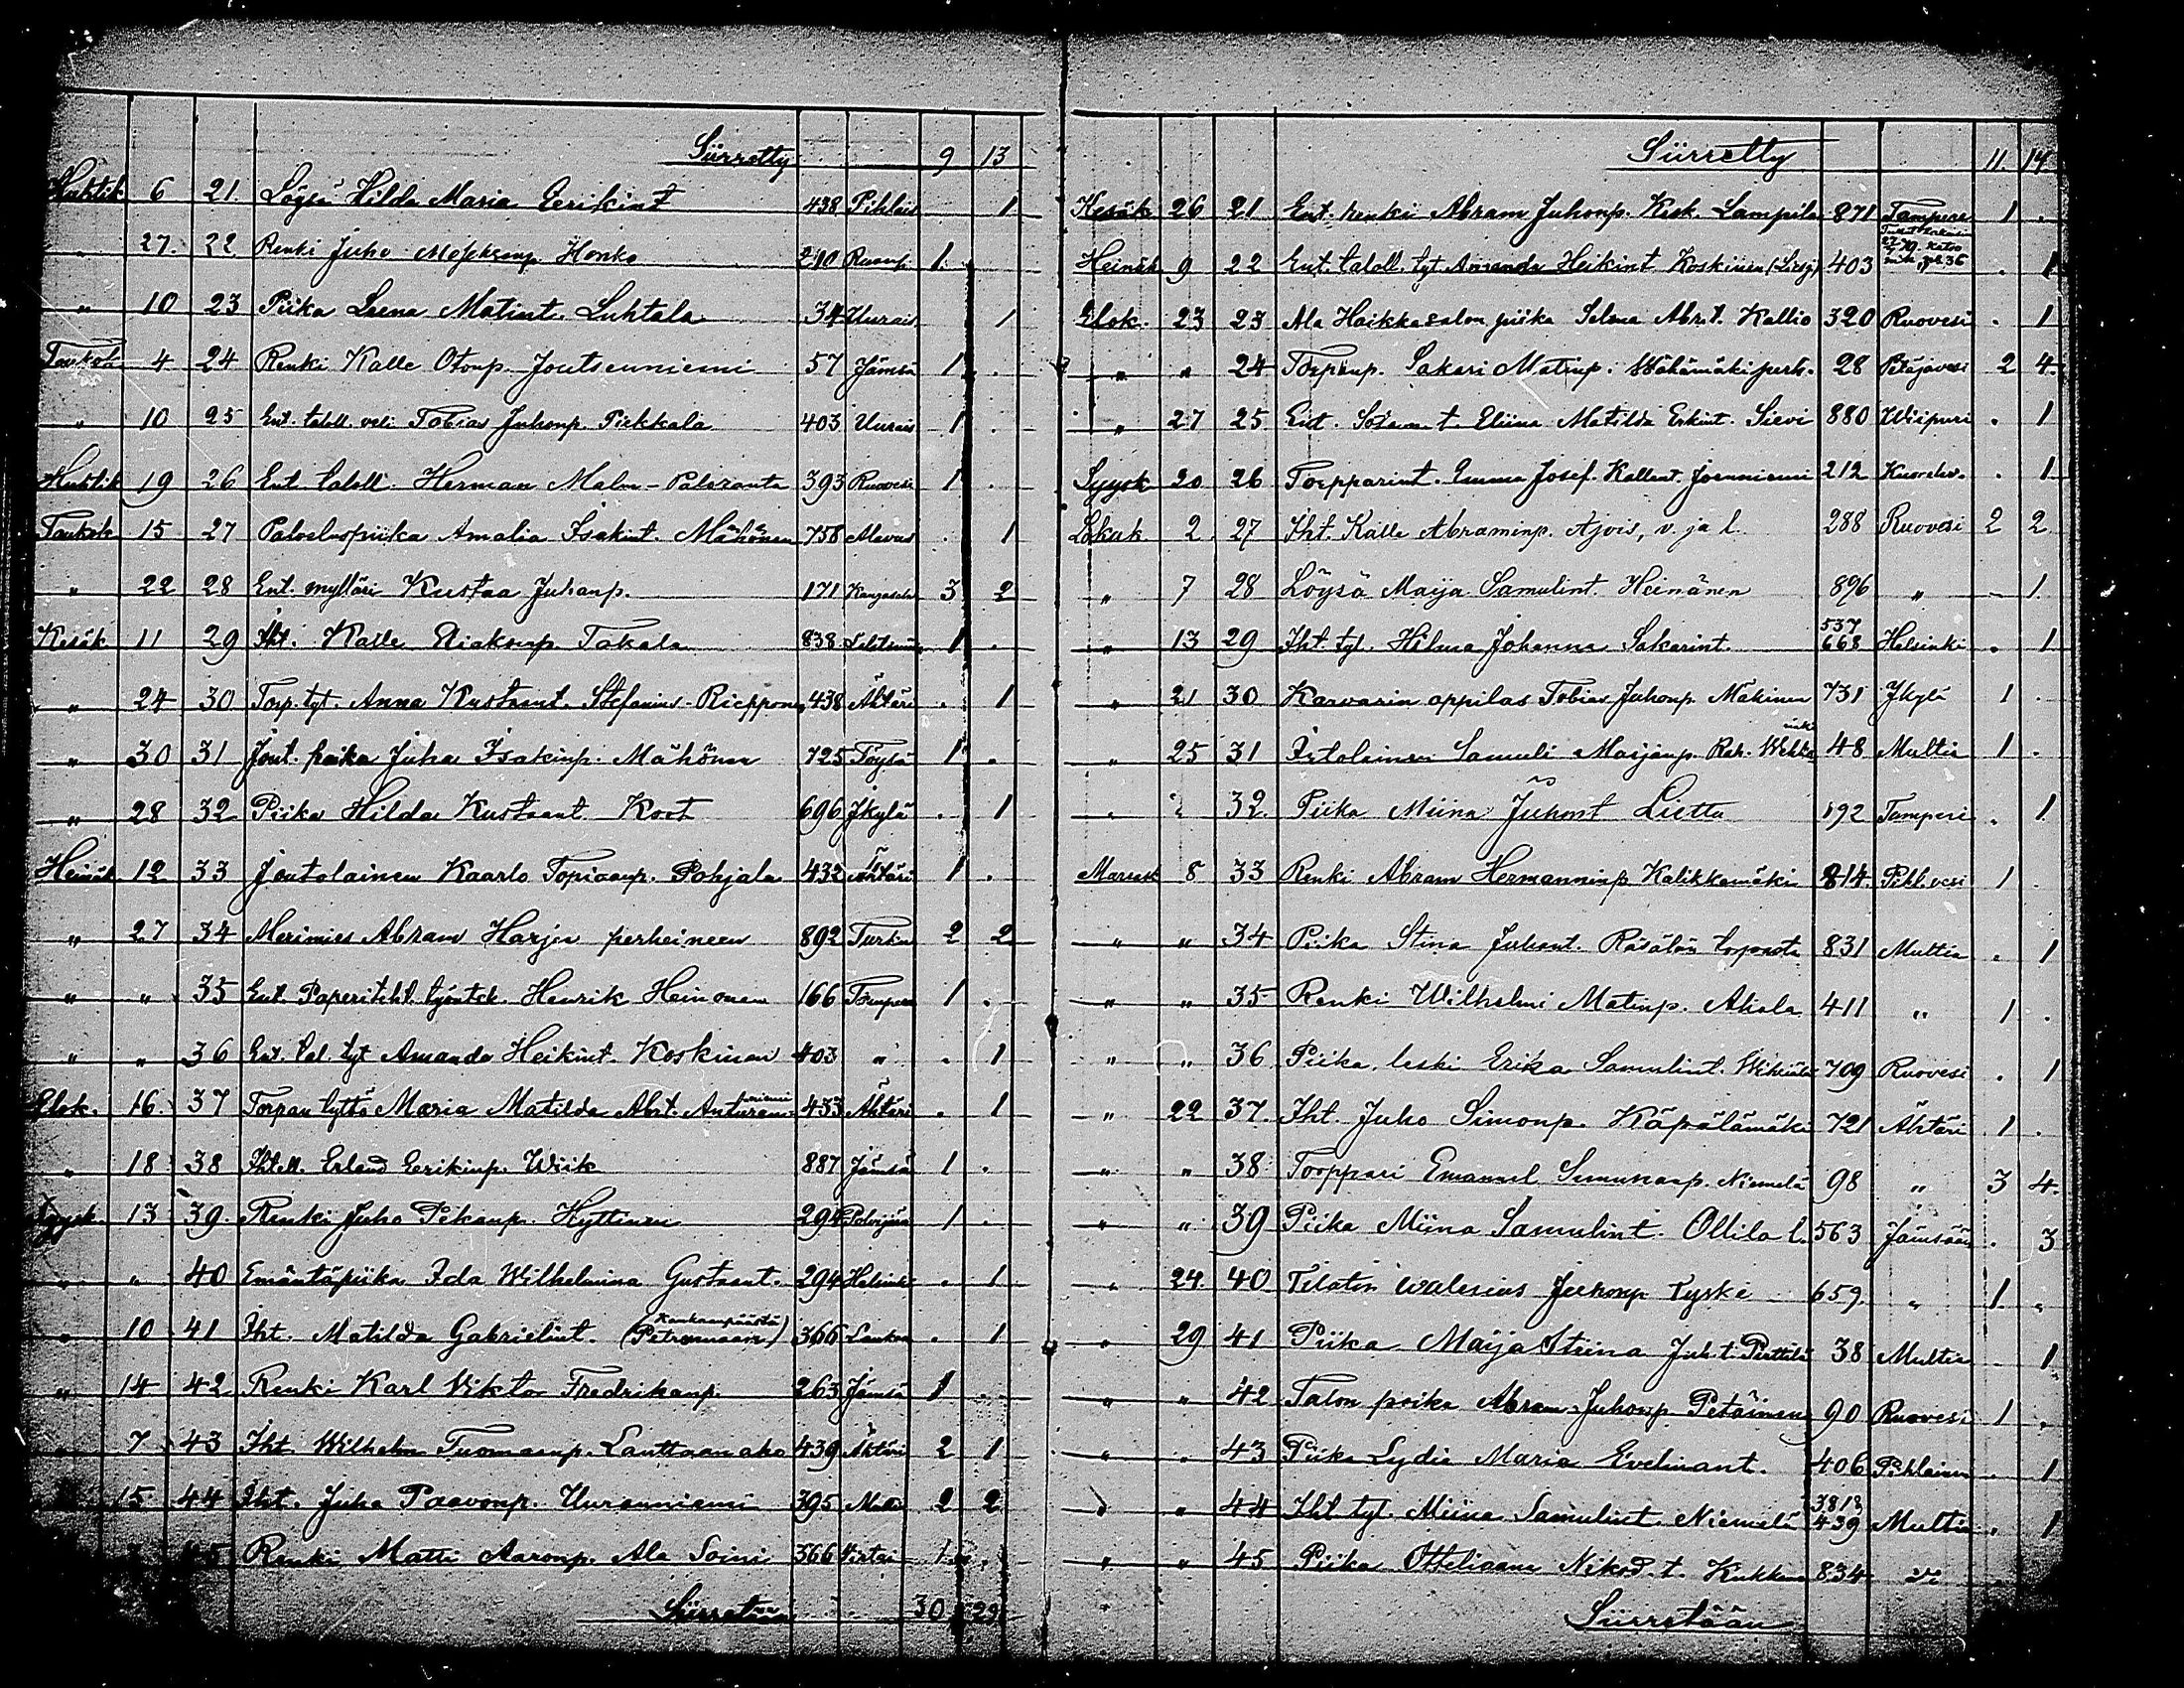 Siirretty 9 13
Huhtik 6 21. Löysä Hilda Maria Eerikint 438 Pihlais 1
" 27. 22 Renki Juho Honko 210 Ruovp. 1.
" 10 23 Piika Leena Matint. Luhtala 34 Uurais 1
Toukok 4 24 Renki Kalle Otonp. Joutsenniemi 57 Jämsä 1 .
" 10 25 Ent. taloll. veli Tobias Juhonp. Piekkala 403 Uurais 1 .
Huhtik 19 26 Ent. taloll. Herman Malm-Paloranta 393 Ruovesi 1 .
Toukok 15 27 Palveluspiika Amalia Isakint. Mähönen 758 Alavus . 1
" 22 28 Ent. mylläri Kustaa Juhanp. 171 Kangasala 3 2
Kesäk 11 29 Iht. Kalle Eliaksenp. Takala 838 1 .
" 24 30 Torp. tyt. Anna Kustaant. Stefanius-Riepponen 438 Ähtäri . 1
" 30 31 Jout. poika Juha Isakinp. Mähönen 725 Töysä 1 .
" 28 32 Piika Hilda Kustaant Koot 696 Jkylä . 1
Heinäk 12 33 Joutolainen Kaarlo Topiaanp. Pohjala 432 Ähtäri 1 .
" 27 34 Merimies Abram Harju perheineen 892 Turku 2 2
" " 35 Ent. Paperiteht. työntek. Henrik Heinonen 166 Tampere 1 .
" " 36 Ent. tal. tyt Amanda Heikint. Koskinen 403 " . 1
Elok. 16. 37 Torpan tyttö Maria Matilda Abrt. Anturaniemi 433 Ähtäri . 1
" 18 38 Itsell. Erland Eerikinp. Wiik 887 Jämsä 1 .
Syysk 13 39. Renki Juho Pekanp. Hyttinen 294 Polvijärvi 1 .
" " 40 Emäntäpiika Ida Wilhelmina Gustaant. 294 Helsinki . 1
" 10 41 Iht. Matilda Gabrielint. (Kankaanpäästä Petromaan) 366 . 1
" 14 42 Renki Karl Viktor Fredrikanp. 263 Jämsä 1 .
" 7 43 Iht. Wilhelm Tuomaanp. Lauttaanaho 439 Ähtäri 2 1
15 44 Iht. Juha Paavonp. Uuranniemi 395 Multi 2 2
45 Renki Matti Aaronp. Ala Soini 366 Virtai 1 .
Siirretään 30 29
Siirretty 11. 14.
Kesäk 26 21 Ent. renki Abram Juhonp. Kesk. Lampila 871 Tampere 1 .
Heinäk 9 22 Ent. taloll. tyt Amanda Heikint Koskinen 403 . 1
Elok. 23 23 Ala Haikkasalon piika Selma Abr.t. Kallio 320 Ruovesi . 1
" " 24 Torpanp. Sakari Matinp. Wähämäki perh. 28 Petäjävesi 2 4
" 27 25 Ent. Eliina Matilda Erkint. Sievi 880 Wiipuri . 1
Syysk 20 26 Torpparint. Emma Josef. Kallent. Joenniemi 212 Kuorehv. . 1
Lokak 2 27 Iht. Kalle Abraminp. Ajois, v. ja l. 288 Ruovesi 2 2
" 7 28 Löysä Maija Samulint. Heinänen 896 " - 1.
" 13 29 Iht. tyt. Hilma Johanna Sakarint. 537 668 Helsinki . 1
" 21 30 Karvarin oppilas Tobias Juhonp. Mäkinen 731 Jkylä 1 .
" 25 31 Irtolainen Samuli Maijanp. 48 Multia 1 .
" " 32. Piika Miina Juhont Lietta 192 Tamperi . 1
Marrask 8 33 Renki Abram Hermanninp Kalikkamäki 814. Pihl.vesi 1 .
" " 34 Piika Stina Juhont. Räsälän torpasta 831 Multia . 1
" " 35 Renki Wilhelmi Matinp. Ahola 411 " 1 .
" " 36 Piika leski Erika Samulint. 709 Ruovesi . 1
" 22 37. Iht. Juho Simonp. Käpälämäki 721 Ähtäri 1 .
" " 38 Torppari Emanuel Simunanp. Niemelä 98 " 3 4.
" " 39 Piika Miina Samulint. Ollila l. 563 Jämsään . 3
" 24. 40 Tilaton Walesius Juhonp Tyski 659. " 1 "
" 29 41 Piika Maija Stiina Juh.t. Perttilä 38 Multia . 1
" " 42 Talon poika Abram Juhonp Petäinen 90 Ruovesi 1 .
" " 43 Piika Lydia Maria Evelinant. 406 Pihlainen . 1
" " 44 Iht tyt. Miina Samulint. Niemelä 439 Multia . 1
" " 45 Piika Otteliaana Nikod. t. Kukkon 834
Siirretään